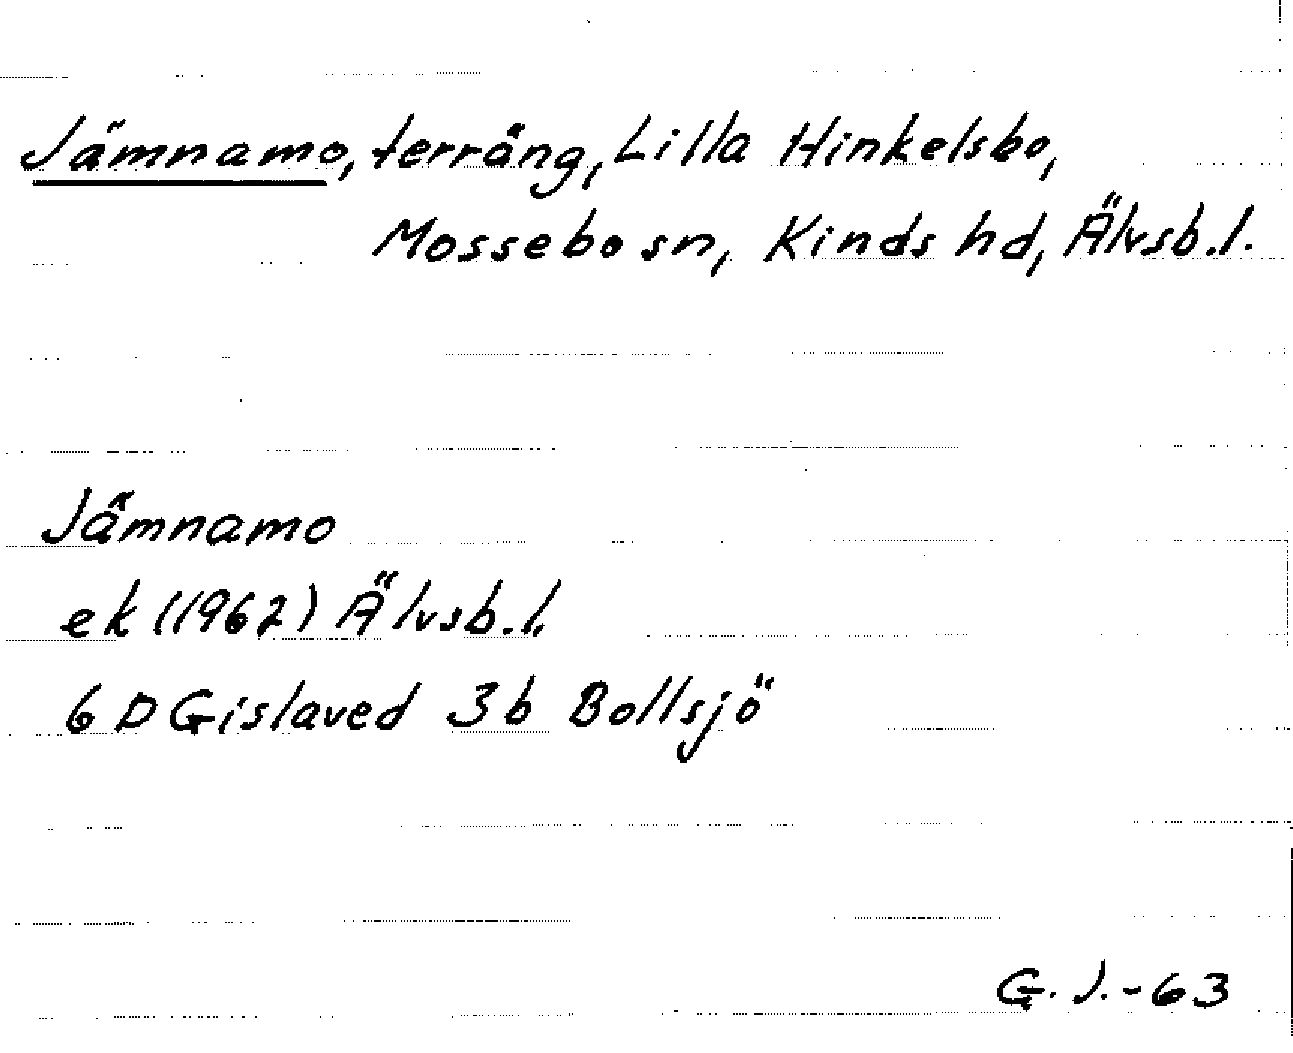 Jämnamo, terräng, Lilla Hinkelsbo,
Mossebo sn, Kinds hd, Älvsb.l.
Jämnamo
ek (1962) Älvsb.l.
6 D Gislaved 3b Bollsjö
G. J. -63